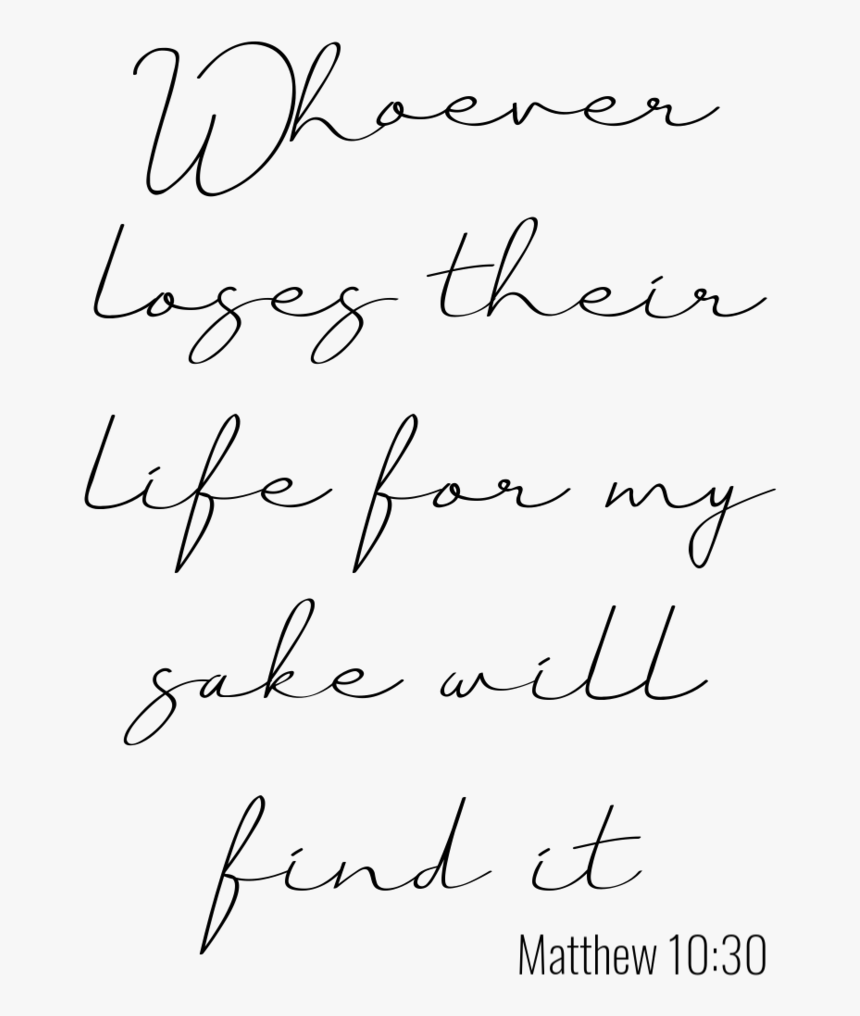 Whoever
loses their
life for my
sake will
find it
Matthew 10:30